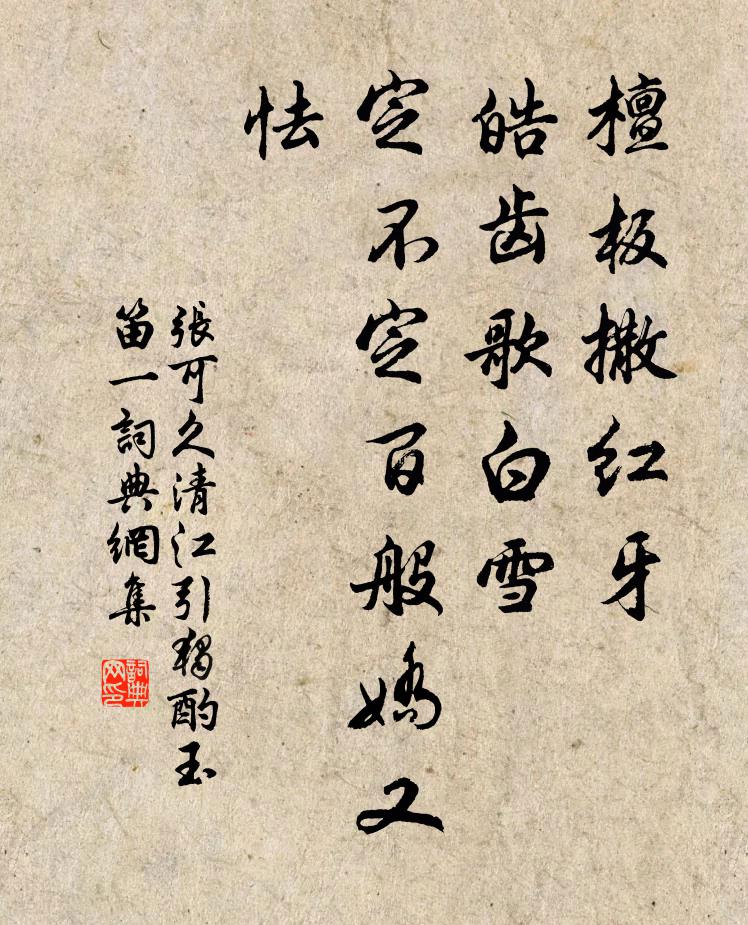 檀板撒红牙
皓齿歌白雪
定不定百般娇又
怯
張可久清江引独酌玉
笛一詞典網集
詞典网印